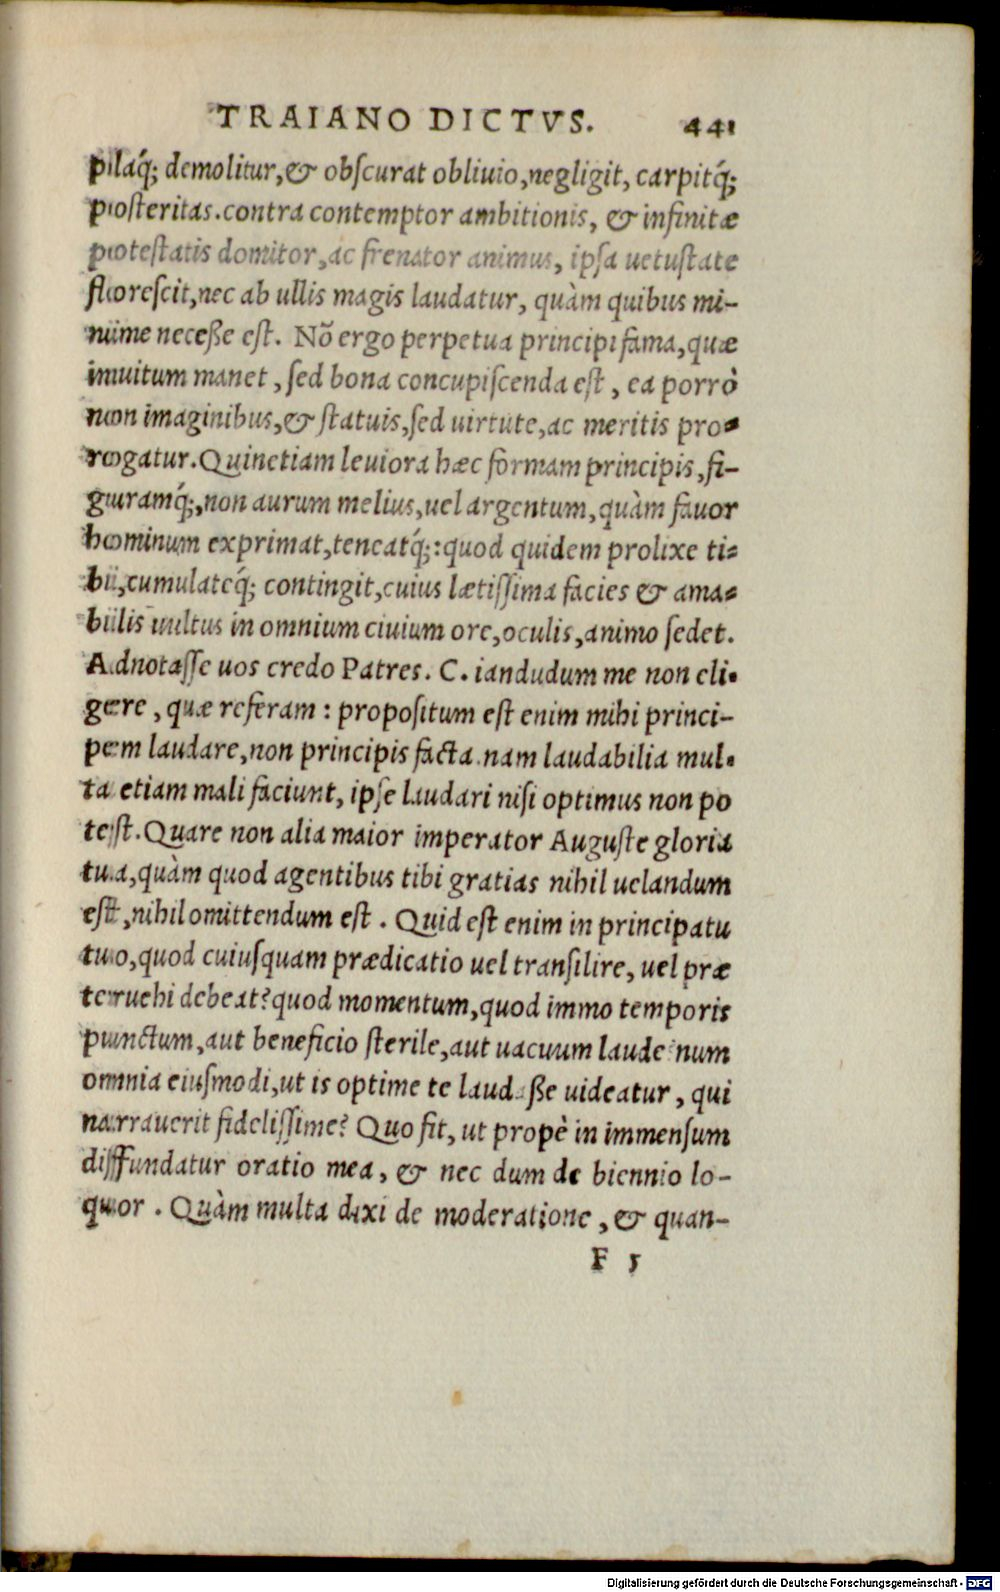 TRAIANO DICTVS. 441
pilaq́; demolitur, & obſcurat obliuio, negligit, carpitq́;
poſteritas. contra contemptor ambitionis, & infinitæ
poteſtatis domitor, ac frenator animus, ipſa uetuſtate
floreſcit, nec ab ullis magis laudatur, quàm quibus mi-
nime neceße eſt. Nõ ergo perpetua principi fama, quæ
inuitum manet, ſed bona concupiſcenda eſt, ea porrò
non imaginibus, & ſtatuis, ſed uirtute, ac meritis pro-
rogatur. Quinetiam leuiora hæc formam principis, fi-
guramq́;, non aurum melius, uel argentum, quàm fauor
hominum exprimat, teneatq́;: quod quidem prolixe ti-
bi, cumulateq́; contingit, cuius lætiſſima facies & ama-
bilis uultus in omnium ciuium ore, oculis, animo ſedet.
Adnotaſſe uos credo Patres. C. iandudum me non eli-
gere, quæ referam: propoſitum eſt enim mihi princi-
pem laudare, non principis facta. nam laudabilia mul-
ta etiam mali faciunt, ipſe laudari niſi optimus non po
teſt. Quare non alia maior imperator Auguſte gloria
tua, quàm quod agentibus tibi gratias nihil uelandum
eſt, nihil omittendum eſt. Quid eſt enim in principatu
tuo, quod cuiuſquam prædicatio uel tranſilire, uel præ
teruehi debeat? quod momentum, quod immo temporis
punctum, aut beneficio ſterile, aut uacuum laude? num
omnia eiuſmodi, ut is optime te laudaße uideatur, qui
narrauerit fideliſſime? Quo fit, ut propè in immenſum
diffundatur oratio mea, & nec dum de biennio lo-
quor. Quàm multa dixi de moderatione, & quan-
F 5
Digitalisierung gefördert durch die Deutsche Forschungsgemeinschaft - DFG